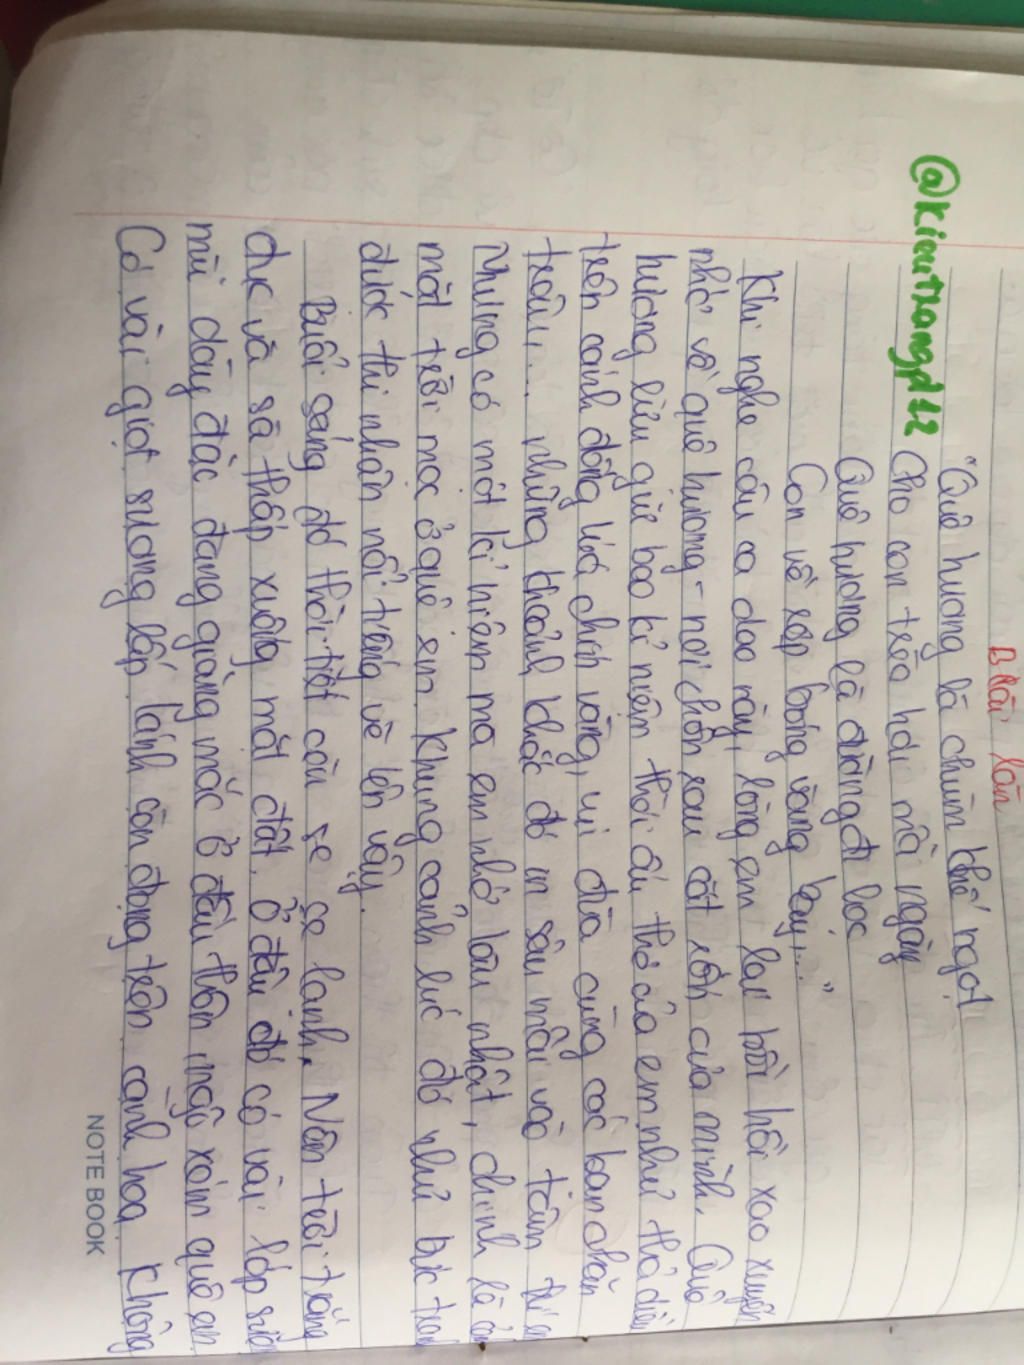 Bài làm
"Quê hương là chùm khế ngọt
Cho con trèo hái mỗi ngày
Quê hương là đường đi học
Con về rợp bướm vàng bay..."
@kieutrangpt22
Khi nghe câu ca dao này, lòng em lại bồi hồi xao xuyến
nhớ về quê hương - nơi chôn rau cắt rốn của mình. Quê
hương lưu giữ bao kỉ niệm thời ấu thơ của em như thả diều
trên cánh đồng lúa chín vàng, vui đùa cùng các bạn chăn
trâu... những khoảnh khắc đó in sâu mãi vào tâm trí em
Nhưng có một kỉ niệm mà em nhớ lâu nhất, chính là
mặt trời mọc ở quê em. Khung cảnh lúc đó như bức tranh
được thi nhân nổi tiếng vẽ lên vậy.
Buổi sáng đó thời tiết còn se se lạnh. Nền trời trắng
đục và sà thấp xuống mặt đất. Ở đâu đó có vài lớp sương
mù dày đặc đang giăng mắc ở đầu thôn ngõ xóm quê em
Có vài giọt sương lấp lánh còn đọng trên cành hoa. Không
NOTE BOOK